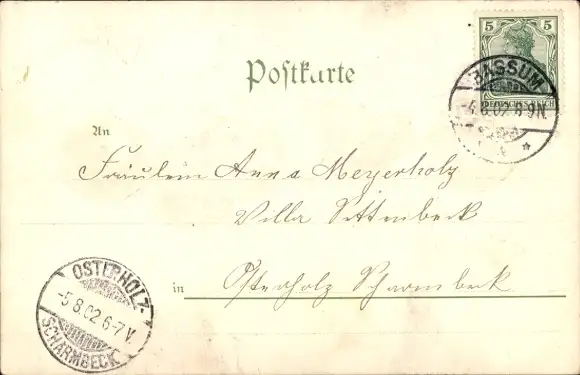 5 5
DEUTSCHES REICH
BASSUM
8.02. 8-9N.
Postkarte
An
Fräulein Anna Meyerholz
Villa Sittenbeck
in Osterholz Scharmbeck
OSTERHOLZ-
-5.8.02.6-7V.
SCHARMBECK